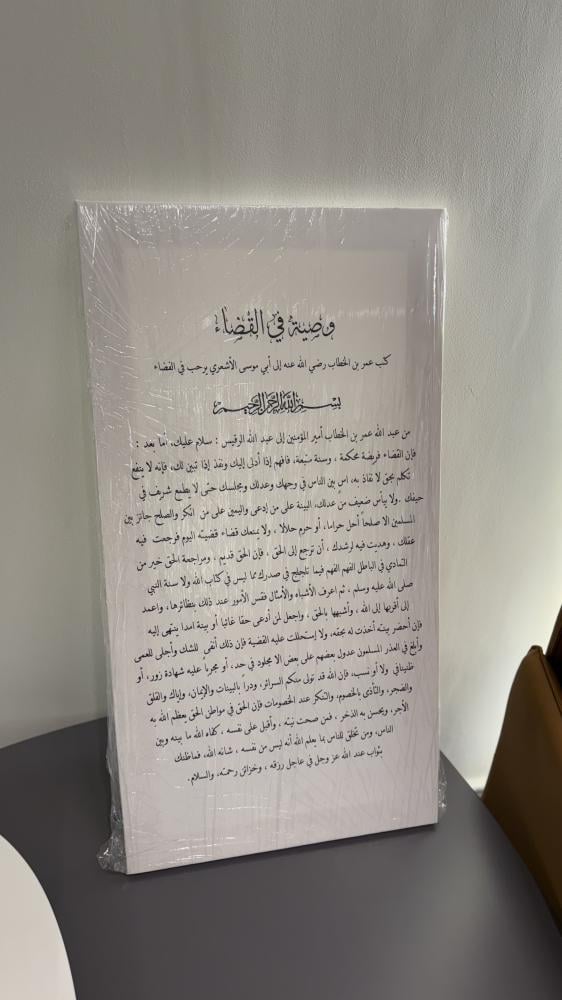 وصية في القضاء
كتب عمر بن الخطاب رضي الله عنه إلى أبي موسى الأشعري يرحب في القضاء
بسم الله الرحمن الرحيم
من عبد الله عمر بن الخطاب أمير المؤمنين إلى عبد الله الرقيس : سلام عليك، أما بعد :
فإن القضاء فريضة محكمة ، وسنة متبعة، فافهم إذا أدلى إليك ونفذ إذا تبين لك، فإنه لا ينفع
تكلم بحق لا نفاذ به، اس بين الناس في وجهك وعدلك ومجلسك حتى لا يطمع شريف في
حيفك . ولا ييأس ضعيف من عدلك، البينة على من إدعى واليمين على من انكر والصلح جائز بين
المسلمين الا صلحاً أحل حراما، أو حرم حلالاً ، ولا يمنعك قضاء قضيته اليوم فرجعت فيه
عقلك ، وهديت فيه لرشدك ، أن ترجع إلى الحق ، فإن الحق قديم ، ومراجعة الحق خير من
التمادي في الباطل الفهم الفهم فيما تلجلج في صدرك مما ليس في كتاب الله ولا سنة النبي
صلى الله عليه وسلم ، ثم اعرف الأشباه والأمثال فقس الأمور عند ذلك بنظائرها، واعمد
إلى أقربها إلى الله ، وأشبهها بالحق ، واجعل لمن أدعى حقا غائبا أو بينة امدا ينتهى إليه
فإن أحضر بينته أخذت له بحقه، ولا إستحللت عليه القضية فإن ذلك أنفى للشك وأجلى للعمى
وأبلغ في العذر المسلمون عدول بعضهم على بعض الا مجلود في حد، أو مجربا عليه شهادة زور، أو
ظنينا في ولا أو نسب، فإن الله قد تولى منكم السرائر، ودرأ بالبينات والإيمان، وإياك والقلق
والضجر، والتأذى بالخصوم، والتنكر عند الخصومات فإن الحق في مواطن الحق يعظم الله به
الأجر، ويحسن به الذخر ، فمن صحت نيته ، وأقبل على نفسه ، كفاه الله ما بينه وبين
الناس، ومن تخلق للناس بما يعلم الله أنه ليس من نفسه ، شانه الله، فماظنك
بثواب عند الله عز وجل في عاجل رزقه ، وخزائن رحمته، والسلام.